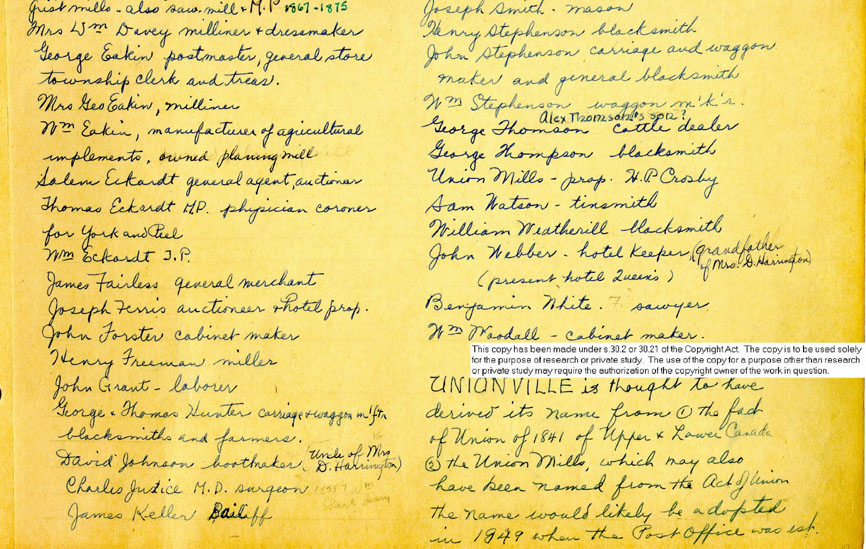 Grist mills - also saw mill & M.P 1867-1875
Mrs Wm Davey milliner & dressmaker
George Eakin postmaster, general store
township clerk and treas.
Mrs Geo Eakin, milliner
Wm Eakin, manufacturer of agricultural
implements, owned planing mill
Salem Eckardt general agent, auctioner
Thomas Eckardt M.D. physician coroner
for York and Peel
Wm Eckardt J.P.
James Fairless general merchant
Joseph Ferris auctioneer & hotel prop.
John Forster cabinet maker
Henry Freeman miller
John Grant - laborer
George & Thomas Hunter carriage & waggon m'f'tr
blacksmiths and farmers.
David Johnson boothaker (Uncle of Mrs
D. Harrington)
Charles Justice M.D. surgeon
James Keller Bailiff
Joseph Smith - mason
Henry Stephenson blacksmith
John Stephenson carriage and waggon
maker and general blacksmith
Wm Stephenson waggon m'k'r.
Alex Thomson's son?
George Thomson cattle dealer
George Thompson blacksmith
Union Mills - prop. H.P Crosby
Sam Watson - tinsmith
William Weatherill blacksmith
John Webber - hotel keeper (grandfather
of Mrs. D. Harrington)
(present hotel Queen's)
Benjamin White - sawyer
Wm Woodall - cabinet maker.
This copy has been made under s.30.2 or 30.21 of the Copyright Act. The copy is to be used solely
for the purpose of research or private study. The use of the copy for a purpose other than research
or private study may require the authorization of the copyright owner of the work in question.
UNIONVILLE is thought to have
derived its name from ① the fact
of Union of 1841 of Upper & Lower Canada
② the Union Mills, which may also
have been named from the Act of Union
the name would likely be adopted
in 1849 when the Post Office was est.